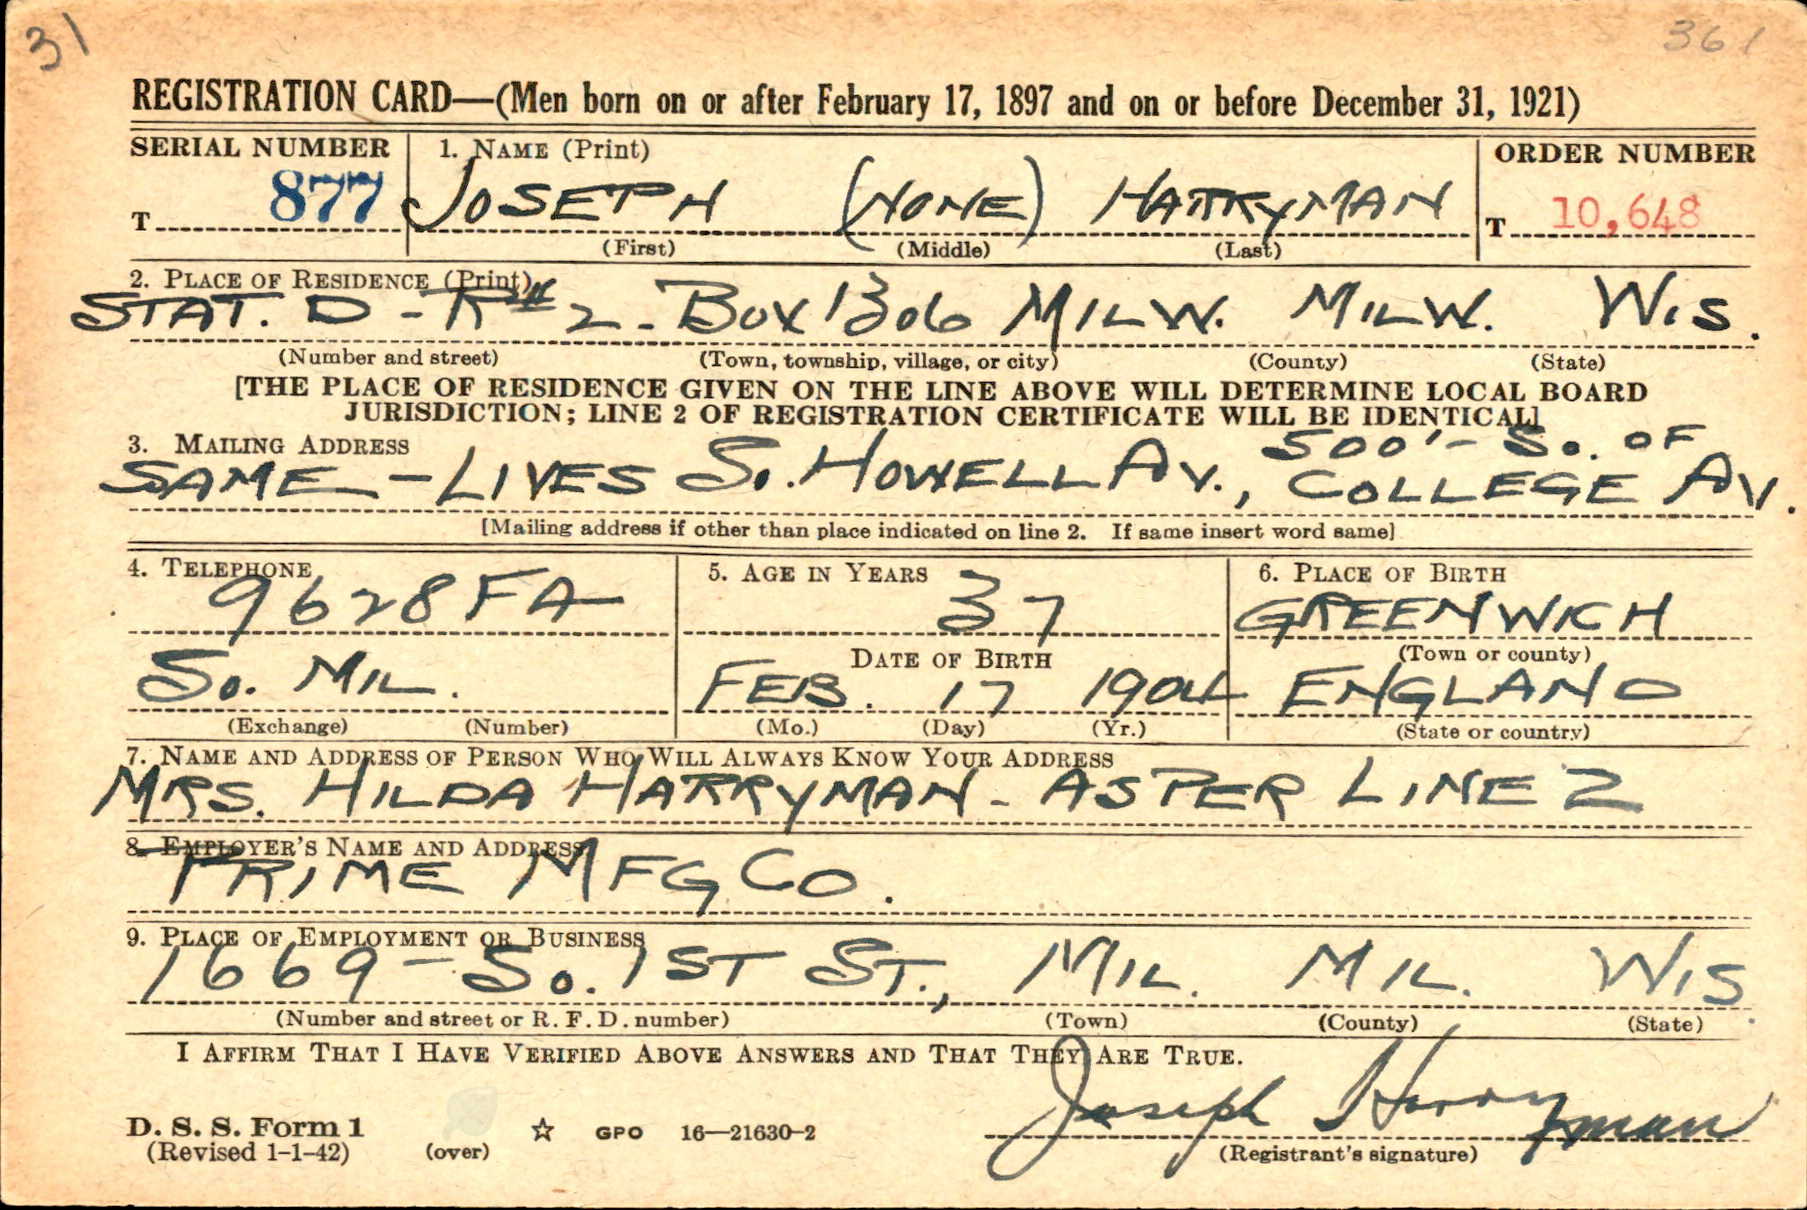 31 361
REGISTRATION CARD—(Men born on or after February 17, 1897 and on or before December 31, 1921)
SERIAL NUMBER 1. NAME (Print) ORDER NUMBER
T 877 JOSEPH (NONE) HARRYMAN T 10,648
(First) (Middle) (Last)
2. PLACE OF RESIDENCE (Print)
STAT. D - R#2 - BOX 1306 MILW. MILW. WIS.
(Number and street) (Town, township, village, or city) (County) (State)
[THE PLACE OF RESIDENCE GIVEN ON THE LINE ABOVE WILL DETERMINE LOCAL BOARD
JURISDICTION; LINE 2 OF REGISTRATION CERTIFICATE WILL BE IDENTICAL]
3. MAILING ADDRESS 500' - SO. OF
SAME - LIVES SO. HOWELL AV., COLLEGE AV.
[Mailing address if other than place indicated on line 2. If same insert word same]
4. TELEPHONE 5. AGE IN YEARS 6. PLACE OF BIRTH
9628 FA 37 GREENWICH
DATE OF BIRTH (Town or county)
SO. MIL. FEB. 17 1904 ENGLAND
(Exchange) (Number) (Mo.) (Day) (Yr.) (State or country)
7. NAME AND ADDRESS OF PERSON WHO WILL ALWAYS KNOW YOUR ADDRESS
MRS. HILDA HARRYMAN - AS PER LINE 2
8. EMPLOYER'S NAME AND ADDRESS
PRIME MFG CO.
9. PLACE OF EMPLOYMENT OR BUSINESS
1669 - SO. 1ST ST., MIL. MIL. WIS.
(Number and street or R. F. D. number) (Town) (County) (State)
I AFFIRM THAT I HAVE VERIFIED ABOVE ANSWERS AND THAT THEY ARE TRUE.
Joseph Harryman
D. S. S. Form 1
(Revised 1-1-42) (over) ☆ GPO 16—21630-2 (Registrant's signature)